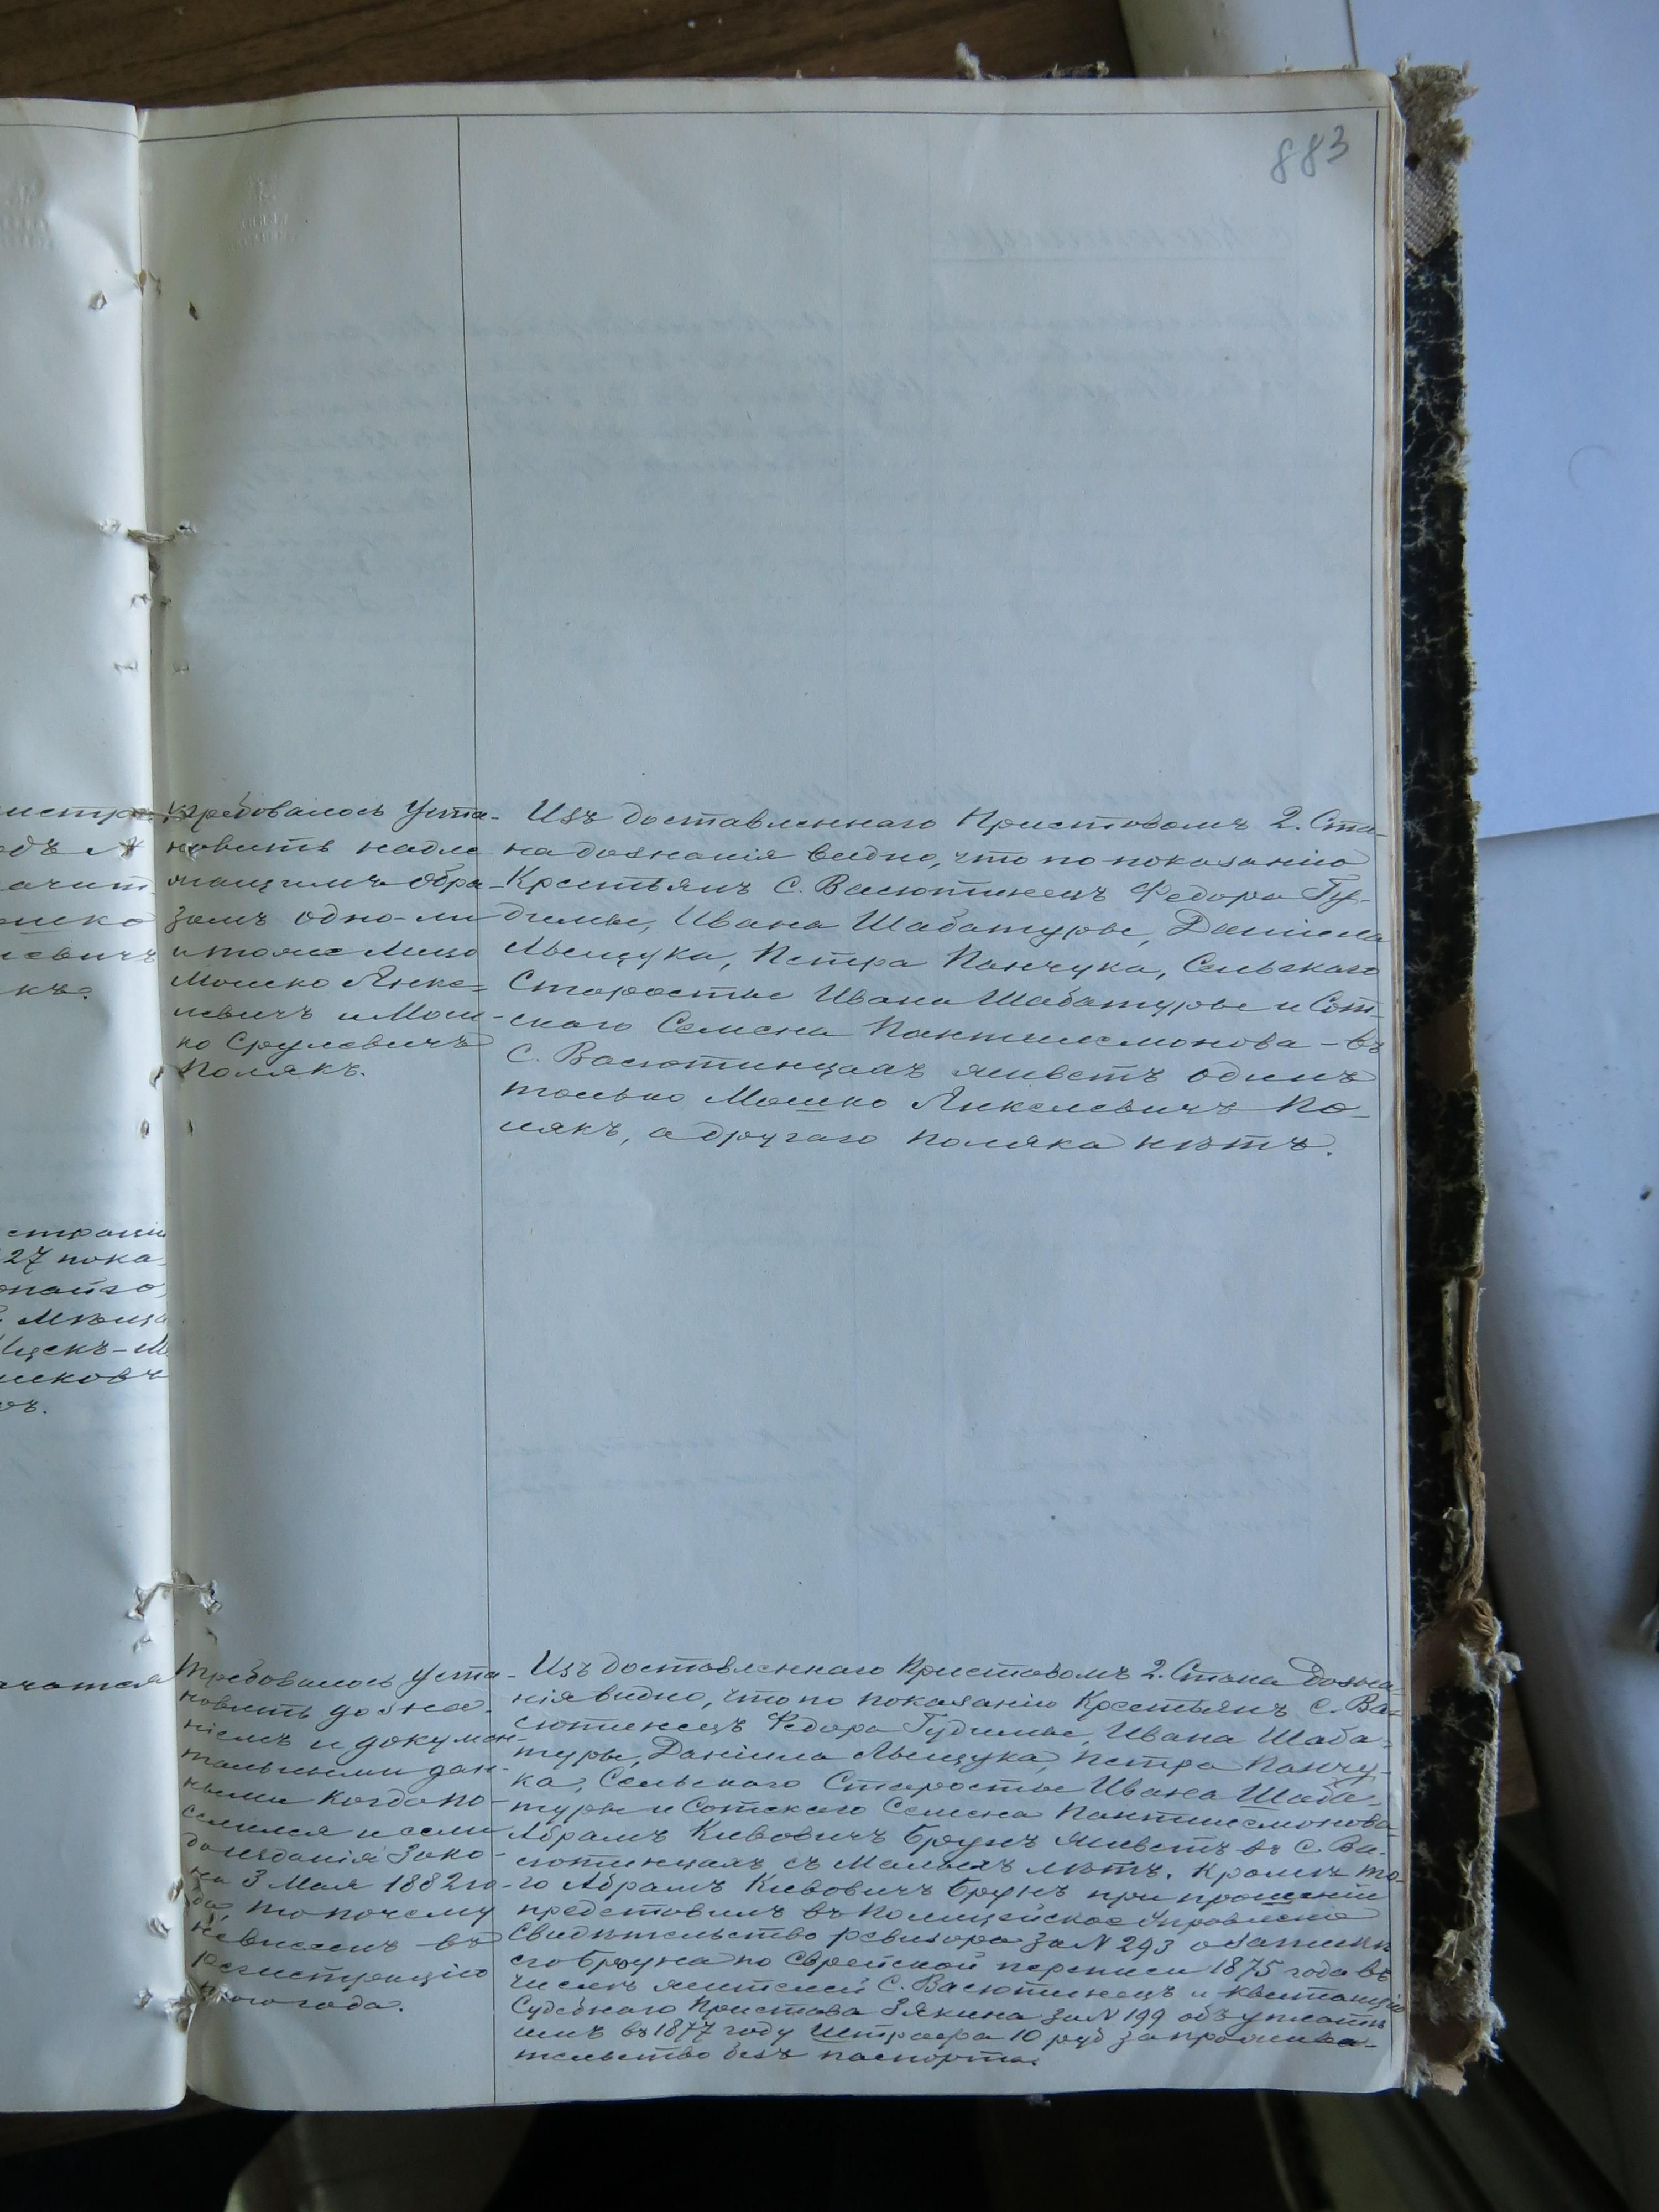 883
Требовалось Уста-
новить надле
жащимъ обра-
зомъ одно-ли
и тоже лицо
Мошко Янке-
левичъ и Мош-
ко Срулевичъ
Полякъ.
Изъ доставленнаго Приставомъ 2. Ста-
на дознанія видно, что по показанію
Крестьянъ С. Васютинецъ Федора Гу-
димы, Ивана Шабатуры, Даніила
Льещука, Петра Панчука, Сельскаго
Старосты Ивана Шабатуры и Сот-
скаго Семена Пантилемонова – въ
С. Васютинцахъ живетъ одинъ
только Мошко Янкелевичъ По-
лякъ, а другаго Поляка нѣтъ.
страціи
27 пока
Требовалось Уста-
новить дозна-
ніемъ и докумен-
тальными дан-
ными когда по-
селился и если
до изданія Зако-
на 3 Мая 1882 го-
да, то почему
невнесенъ въ
Регистрацію
того года.
Изъ доставленнаго Приставомъ 2. Стана Дозна
нія видно, что по показанію Крестьянъ С. Ва-
сютинецъ Федора Гудимы, Ивана Шаба-
туры, Даніила Льещука, Петра Панчу-
ка, Сельскаго Старосты Ивана Шаба-
туры и Сотскаго Семена Пантилемонова
Абрамъ Кивовичъ Брунъ живетъ въ С. Ва-
сютинцахъ съ Малыхъ лѣтъ. Кромѣ то-
го Абрамъ Кивовичъ Брунъ при прошеніи
представилъ въ Полицейское Управленіе
Свидѣтельство ревизора за N 293 о записи
его Бруна по Еврейской переписи 1875 года въ
число жителей С. Васютинецъ и квитанцію
Судебнаго Пристава Зякина за N 199 объ уплатѣ
имъ въ 1877 году Штрафа 10 руб за прожива-
тельство безъ паспорта.